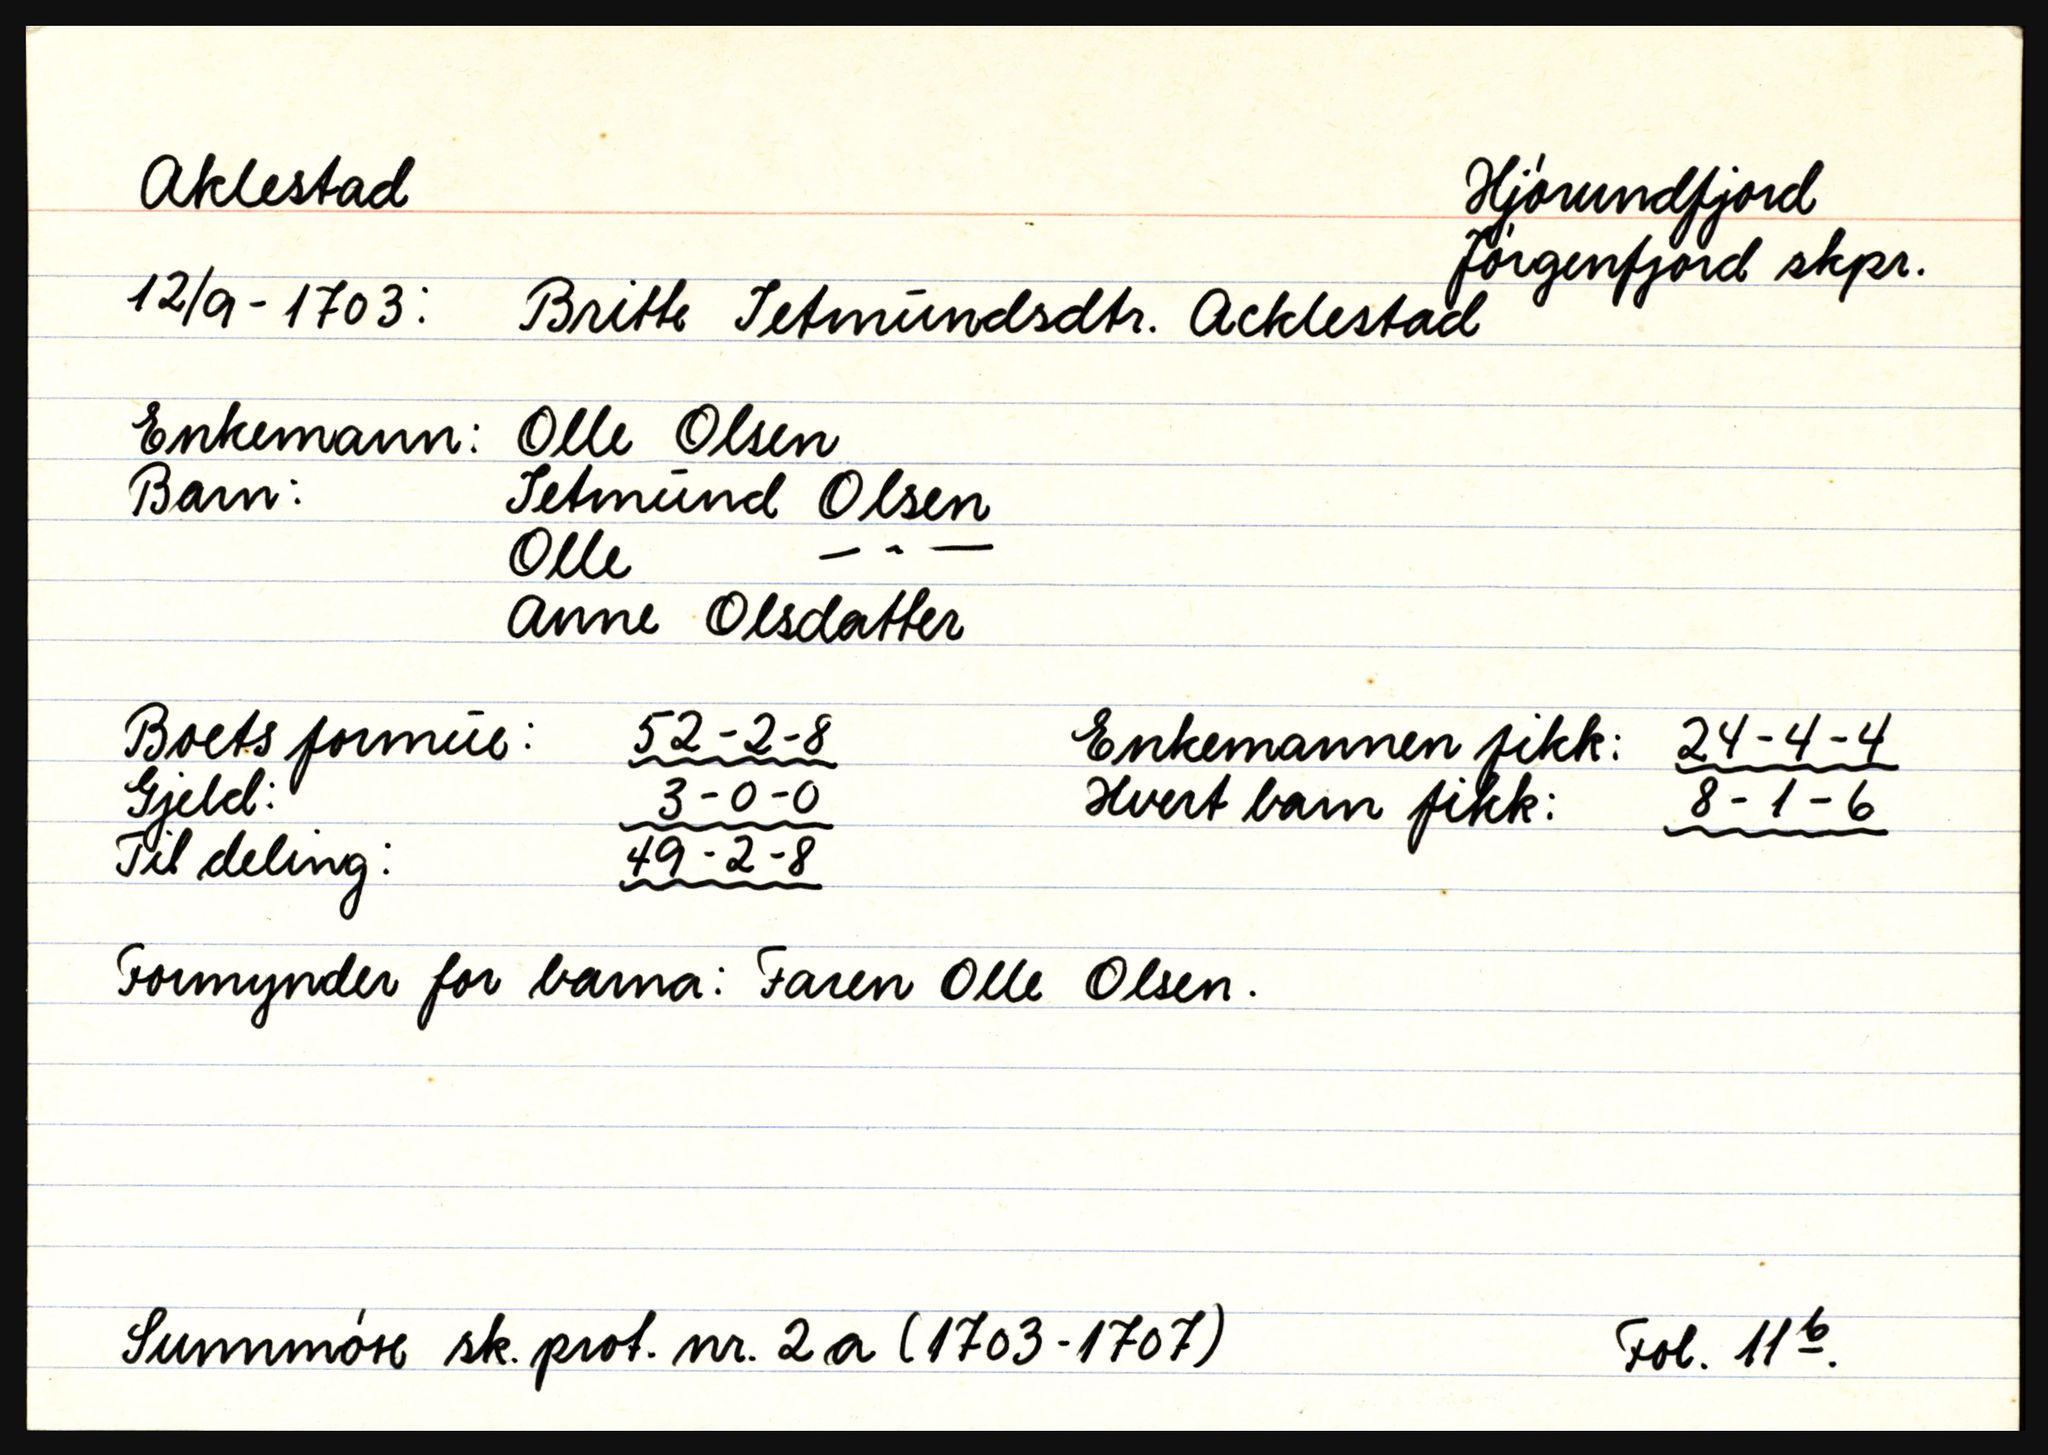 Aklestad Hjørundfjord
Jørgenfjord skpr.
12/9-1703: Britte Jetmundsdtr. Acklestad
Enkemann: Olle Olsen
Barn: Jetmund Olsen
Olle — " —
Anne Olsdatter
Boets formue: 52-2-8 Enkemannen fikk: 24-4-4
Gjeld: 3-0-0 Hvert barn fikk: 8-1-6
Til deling: 49-2-8
Formynder for barna: Faren Olle Olsen.
Sunnmøre sk. prot. nr. 2a (1703-1707) Fol. 11b.